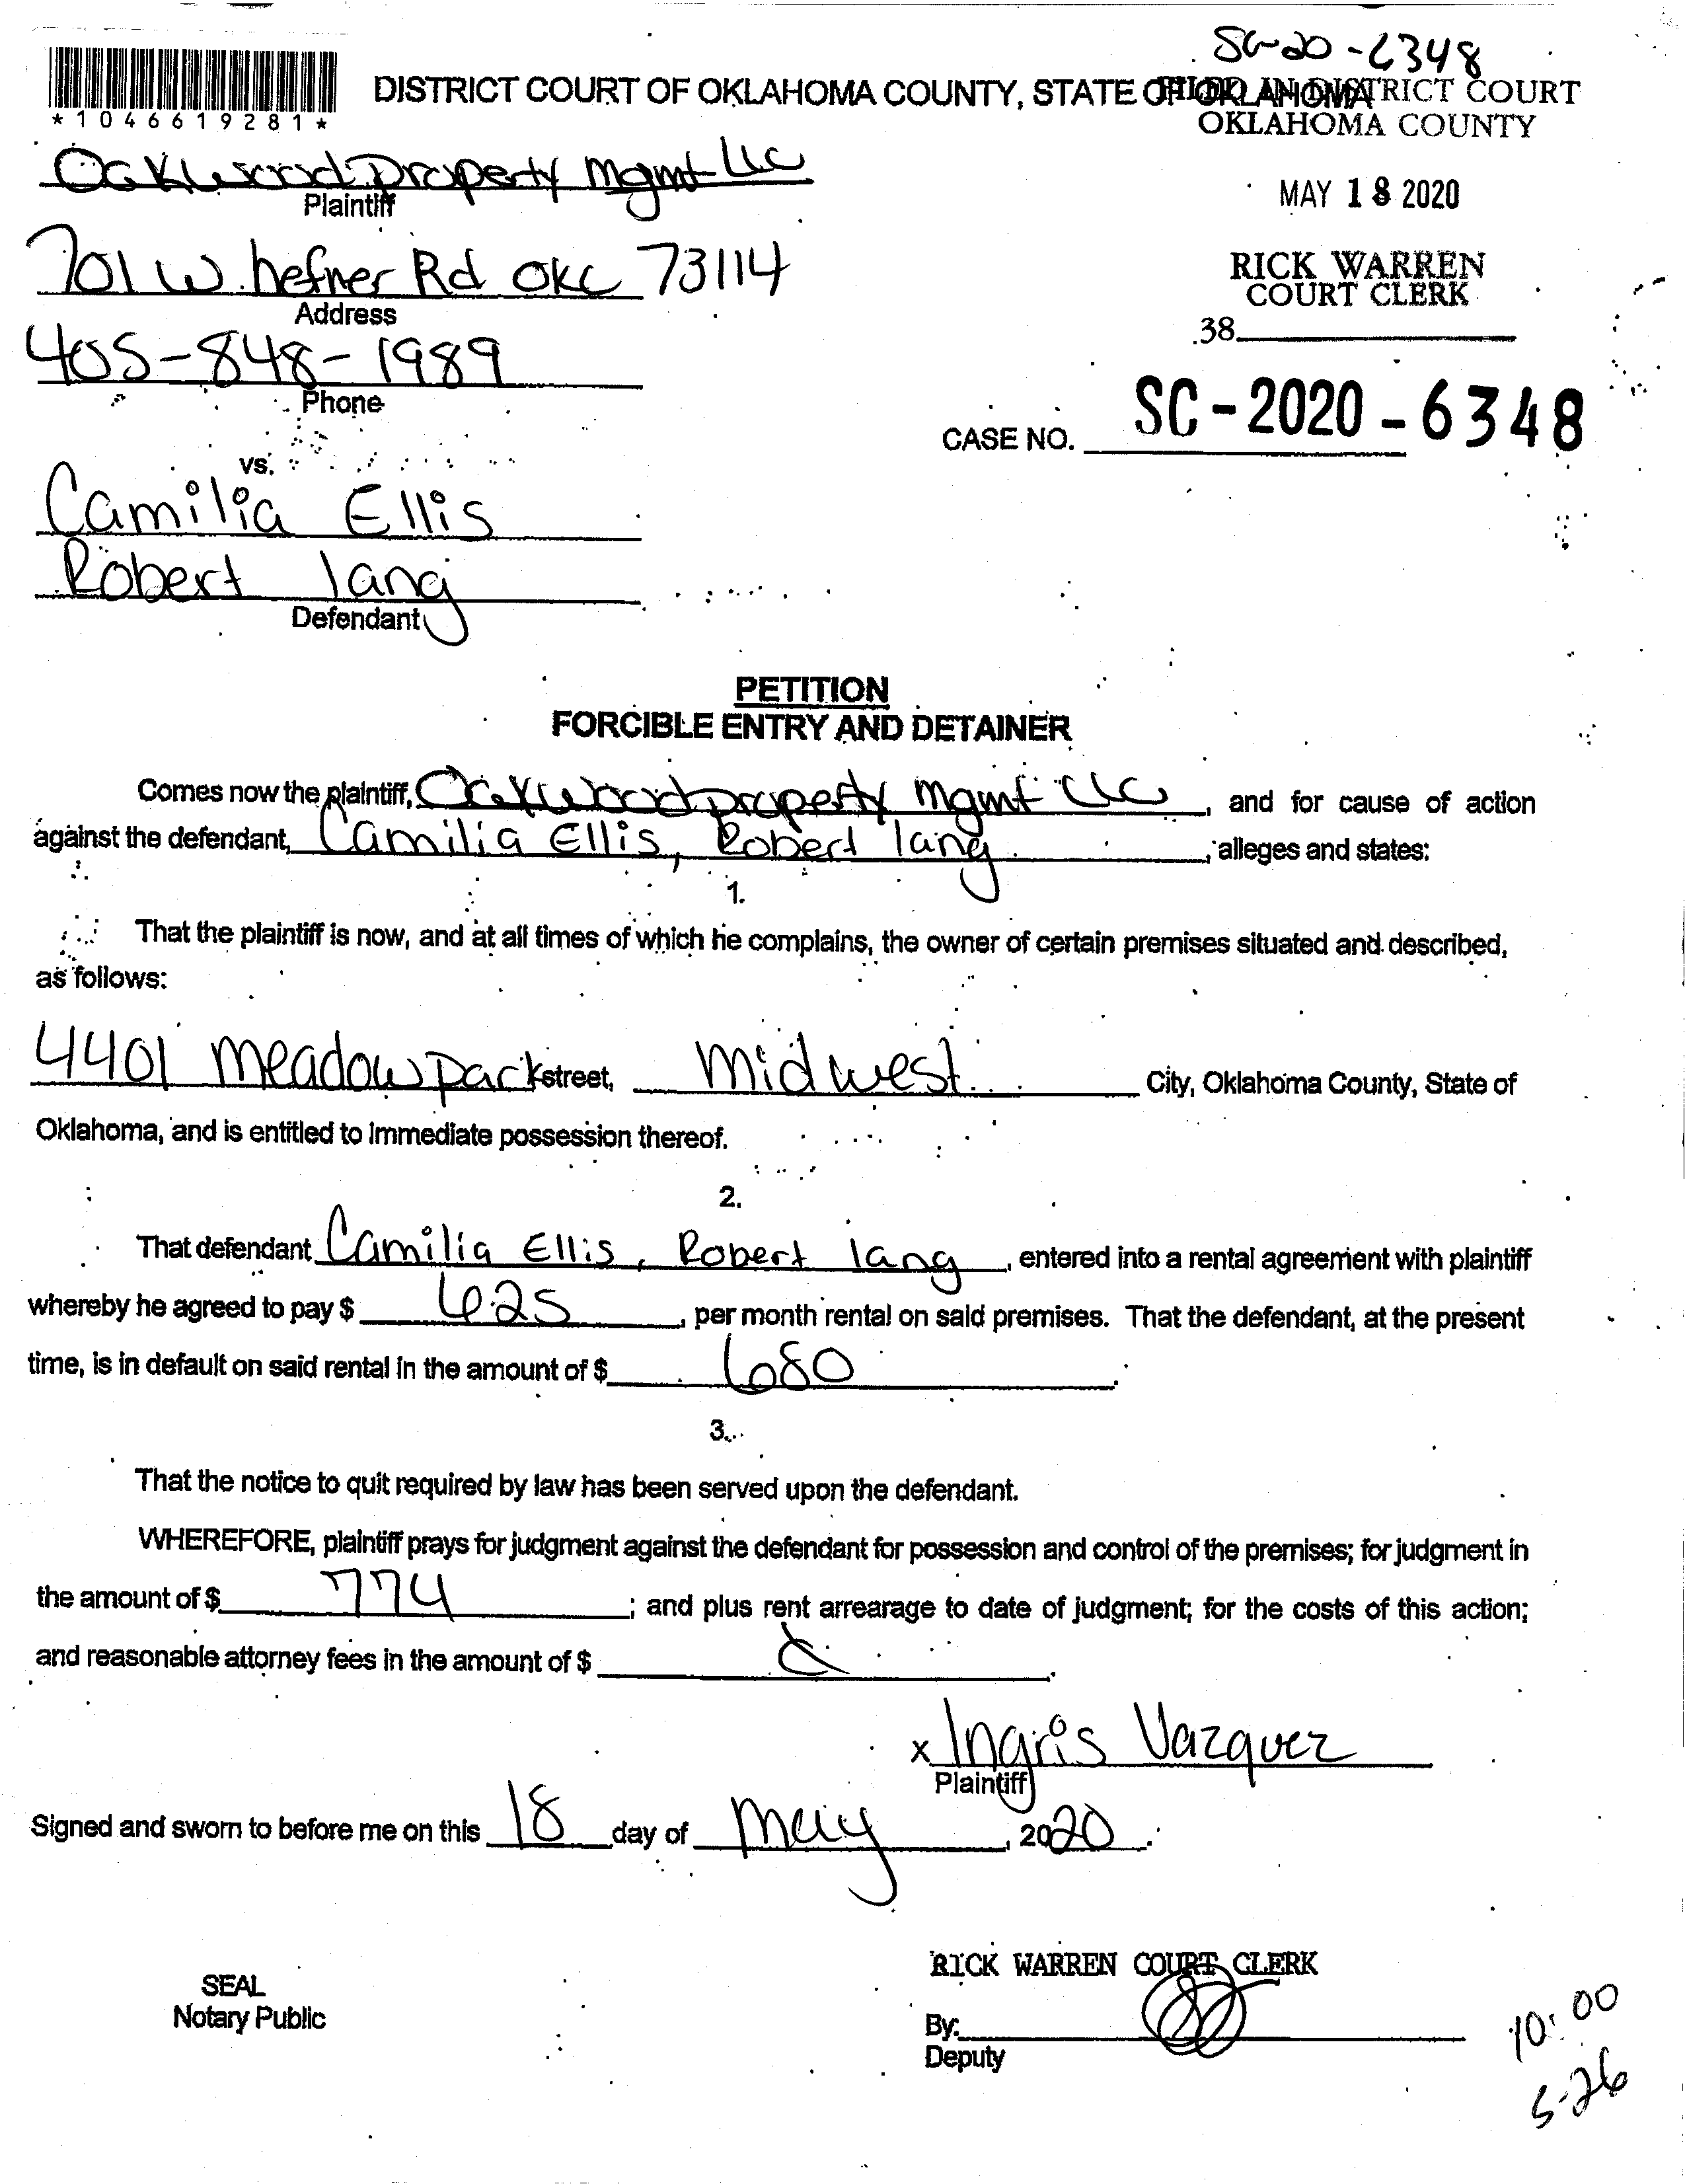 SC-20-6348
*1046619281*
DISTRICT COURT OF OKLAHOMA COUNTY, STATE OF OKLAHOMA
FILED IN DISTRICT COURT
OKLAHOMA COUNTY
Oakwood property mgmt LLC
Plaintiff
MAY 18 2020
701 W. hefner Rd OKC 73114
Address
RICK WARREN
COURT CLERK
38
405-848-1989
Phone
CASE NO. SC-2020-6348
vs.
Camilia Ellis
Robert lang
Defendant
PETITION
FORCIBLE ENTRY AND DETAINER
Comes now the plaintiff, Oakwood property mgmt LLC, and for cause of action
against the defendant, Camilia Ellis, Robert lang, alleges and states:
1.
That the plaintiff is now, and at all times of which he complains, the owner of certain premises situated and described,
as follows:
4401 meadow park street, midwest City, Oklahoma County, State of
Oklahoma, and is entitled to immediate possession thereof.
2.
That defendant Camilia Ellis, Robert lang, entered into a rental agreement with plaintiff
whereby he agreed to pay $ 625, per month rental on said premises. That the defendant, at the present
time, is in default on said rental in the amount of $ 680.
3.
That the notice to quit required by law has been served upon the defendant.
WHEREFORE, plaintiff prays for judgment against the defendant for possession and control of the premises; for judgment in
the amount of $ 774; and plus rent arrearage to date of judgment; for the costs of this action;
and reasonable attorney fees in the amount of $
x Ingris Vazquez
Plaintiff
Signed and sworn to before me on this 18 day of May, 2020.
RICK WARREN COURT CLERK
SEAL
Notary Public
By:
Deputy
10:00
5-26